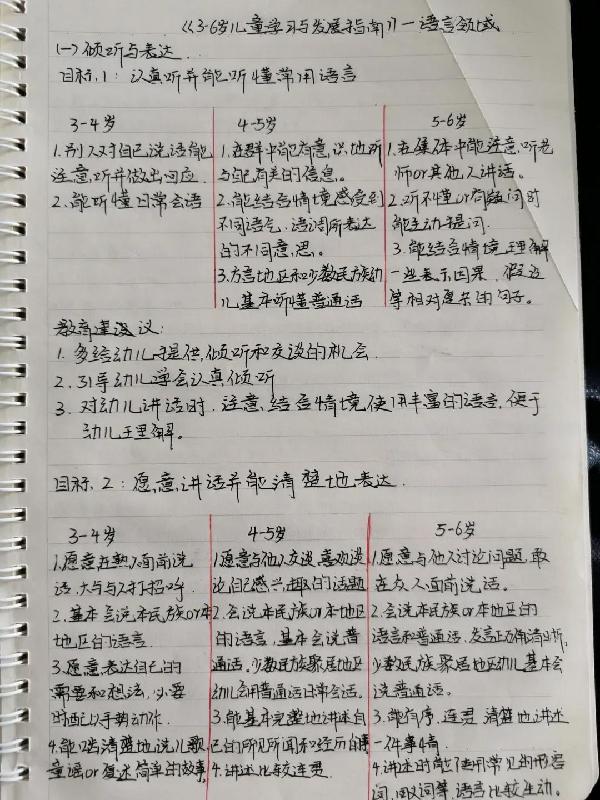 《3-6岁儿童学习与发展指南》一语言领域
(一)倾听与表达
目标.1：认真听并能听懂常用语言
3-4岁
1.别人对自己说话能
注意听并做出回应
2.能听懂日常会话
4-5岁
1.在群中能有意识地听
与自己有关的信息。
2.能结合情境感受到
不同语气、语调所表达
的不同意思。
3.方言地区和少数民族幼
儿基本听懂普通话
5-6岁
1.在集体中能注意听老
师or其他人讲话。
2.听不懂or有疑问时
能主动提问.
3.能结合情境理解
一些表示因果、假设
等相对复杂的句子。
教育建议：
1.多给幼儿提供倾听和交谈的机会.
2.引导幼儿学会认真倾听
3.对幼儿讲话时，注意结合情境使用丰富的语言，便于
幼儿理解。
目标.2：愿意讲话并能清楚地表达.
3-4岁
1.愿意在熟人面前说
话，大方与人打招呼.
2.基本会说本民族or本
地区的语言
3.愿意表达自己的
需要和想法，必要
时配以手势动作.
4.能口齿清楚地说儿歌
童谣or复述简单的故事
4-5岁
1.愿意与他人交谈，喜欢谈
论自己感兴趣的话题
2.会说本民族or本地区
的语言，基本会说普
通话。少数民族聚居地区
幼儿会用普通话日常会话。
3.能基本完整地讲述自
己的所见所闻和经历的事
4.讲述比较连贯
5-6岁
1.愿意与他人讨论问题，敢
在众人面前说话。
2.会说本民族or本地区的
语言和普通话，发音正确清晰，
少数民族聚居地区幼儿基本会
说普通话。
3.能有序、连贯、清楚地讲述
一件事情.
4.讲述时能使用常见的形容
词、同义词等，语言比较生动。